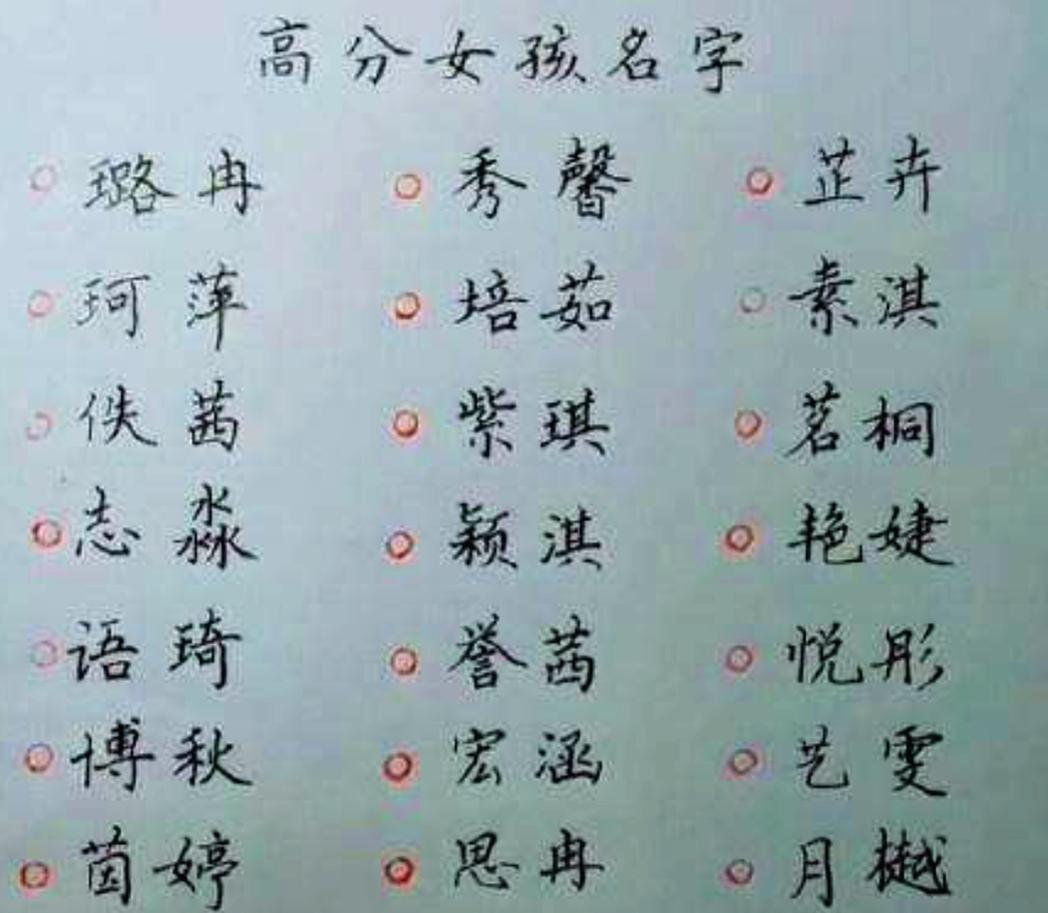 高分女孩名字
璐冉 秀馨 芷卉
珂萍 培茹 素淇
佚茜 紫琪 茗桐
志淼 颖淇 艳婕
语琦 誉茜 悦彤
博秋 宏涵 艺雯
茵婷 思冉 月樾